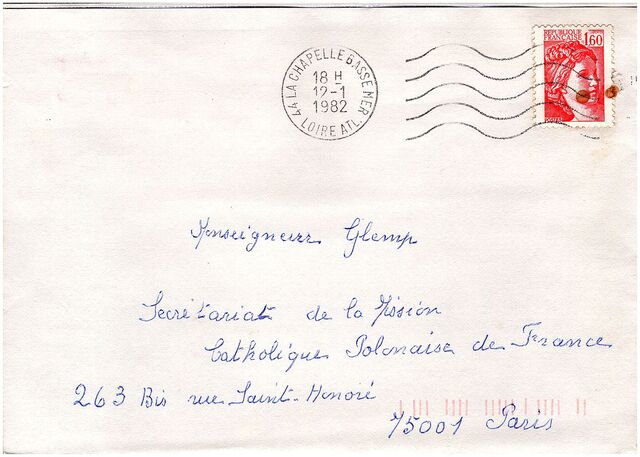 44 LA CHAPELLE BASSE MER
18 H
12-1
1982
LOIRE ATL.
REPUBLIQUE
FRANCAISE
1,60
Monseigneur Glemp
Secrétariat de la Mission
Catholique Polonaise de France
263 Bis rue Saint-Honoré
75001 Paris